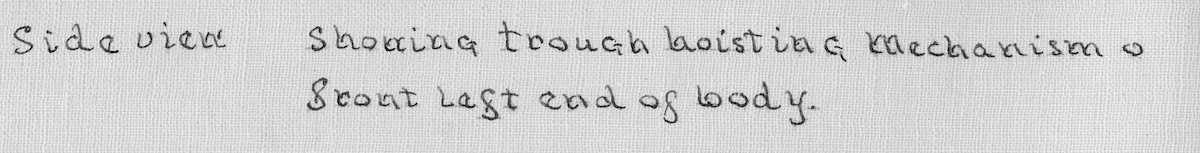 Side view Showing trough hoisting mechanism o
Front Left end of body.